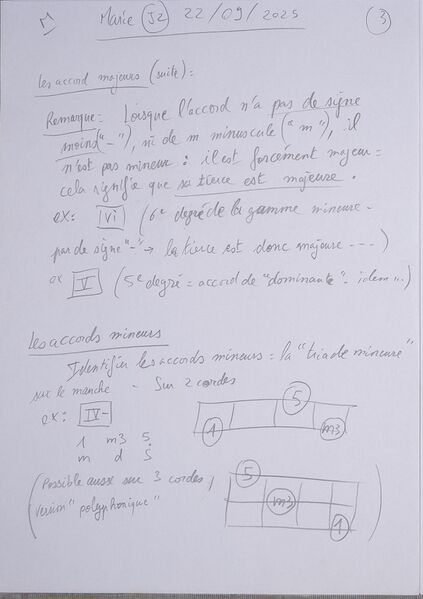 Marie J2 22/09/2025 3
les accord majeurs (suite) :
Remarque : Lorsque l'accord n'a pas de signe
moins ("-"), ni de m minuscule ("m"), il
n'est pas mineur : il est forcément majeur =
cela signifie que sa tierce est majeure.
ex : VI (6e degré de la gamme mineure -
pas de signe "-" → la tierce est donc majeure ---)
ex V (5e degré = accord de "dominante" - idem...)
les accords mineurs
Identifier les accords mineurs = la "triade mineure"
sur le manche - Sur 2 cordes
ex : IV-
1 m3 5
m d
1 5 m3
(Possible aussi sur 3 cordes,
version "polyphonique")
5 m3 1